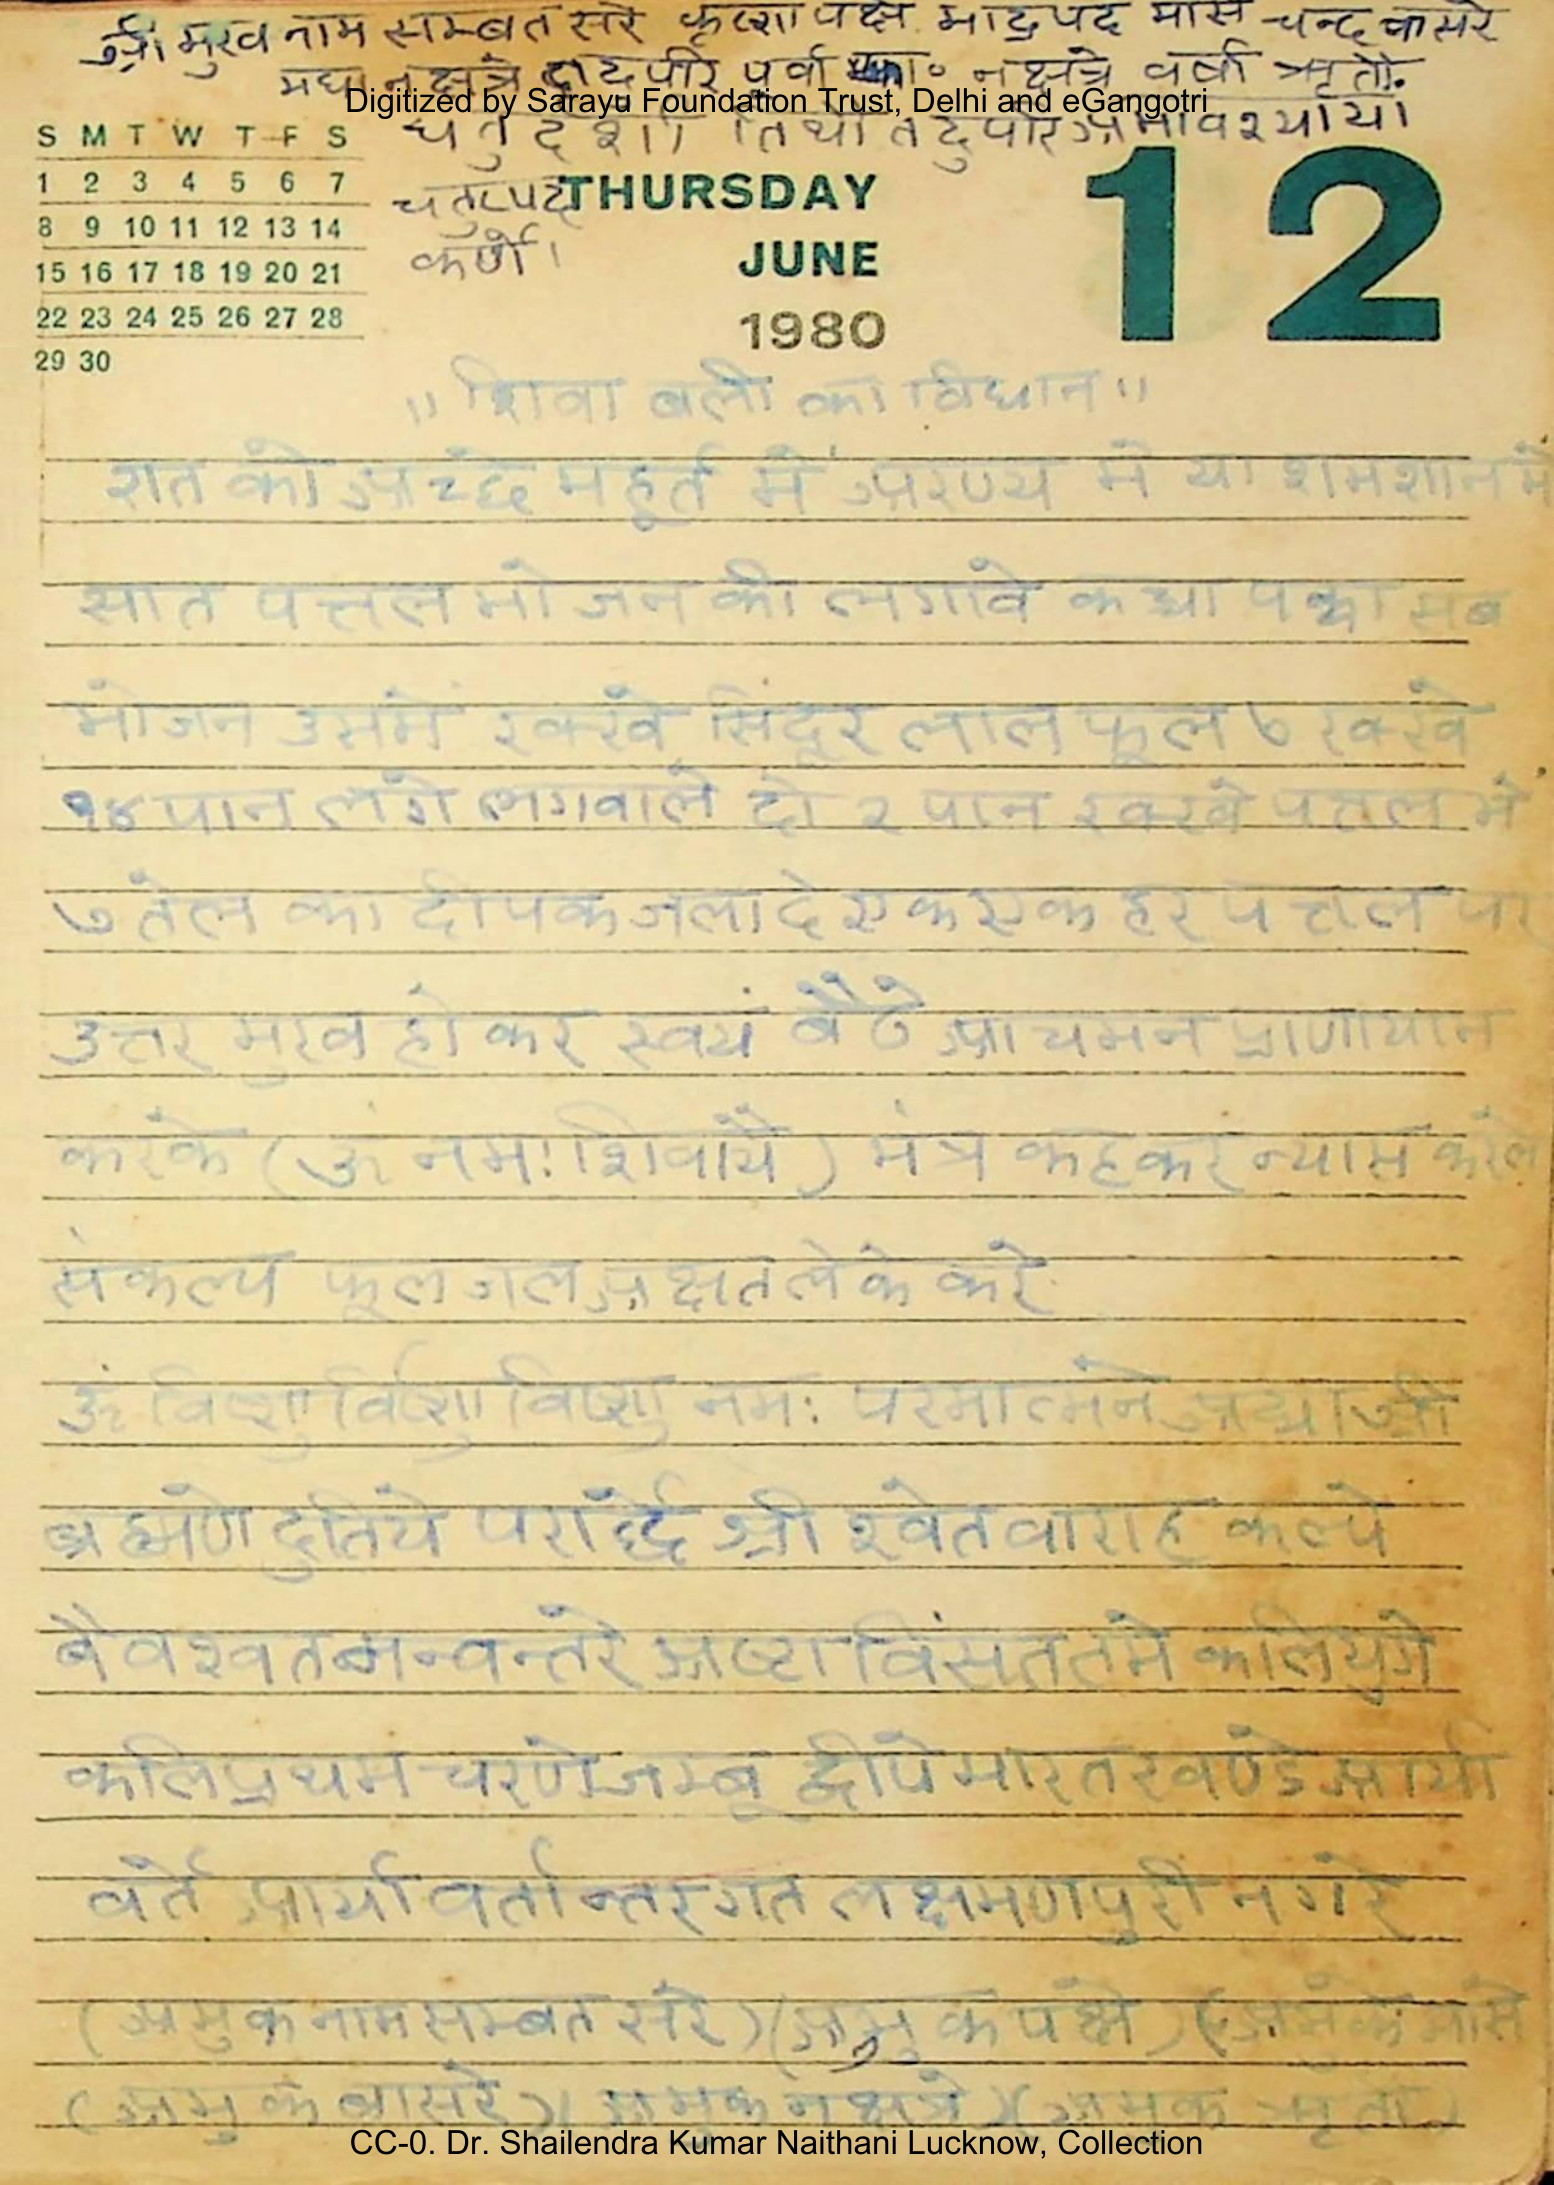 श्री मुख नाम सम्बत सरे कृष्ण पक्षे भाद्रपद मासे चन्द्र बासरे
मघा नक्षत्रे तदुपरि पूर्वा फा० नक्षत्रे वर्षा ऋृतौ.
Digitized by Sarayu Foundation Trust, Delhi and eGangotri
चतुर्दशी तिथौ तदुपरि अमावश्यायां
चतुष्पद
कर्णे।
S M T W T F S
1 2 3 4 5 6 7
8 9 10 11 12 13 14
15 16 17 18 19 20 21
22 23 24 25 26 27 28
29 30
THURSDAY
JUNE
1980
12
॥ शिवा बली का विधान ॥
रात को अच्छे महूर्त में अरण्य मे या शमशान में
सात पत्तल भोजन की लगावे कच्चा पक्का सब
भोजन उसमें रक्खे सिंदूर लाल फूल ७ रक्खे
१४ पान लगे लगवाले दो २ पान रक्खे पत्तल में
७ तेल का दीपक जला दे एक एक हर पत्तल पर
उत्तर मुख हो कर स्वयं बैठे आचमन प्राणायाम
करके (ॐ नमः शिवायै) मंत्र कहकर न्यास करले
संकल्प फूल जल अक्षत लेके करे
ॐ विष्णु र्विष्णु विष्णु नमः परमात्मने अद्य श्री
ब्रह्मणे दुतिये परार्द्धे श्री श्वेतवाराह कल्पे
बैवश्वत मन्वन्तरे अष्टा विंसततमे कलियुगे
कलिप्रथम चरणे जम्बू द्वीपे भारत खण्डे आर्या
वर्ते आर्या वर्तान्तरगत लक्षमणपुरी नगरे
(अमुक नाम सम्बत सरे)(अमुक पक्षे)(अमुक मासे
(अमुक बासरे)(अमुक नक्षत्रे)(अमुक ऋृतौ)
CC-0. Dr. Shailendra Kumar Naithani Lucknow, Collection